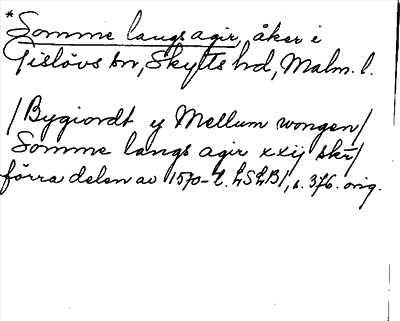 * Somme langs agir, åker i
Gislövs sn, Skytts hd, Malm. l.
/Bygiordt y Mellum wongen/
Somme langs agir xxij skr/
förra delen av 1570-t. LSLB1, s. 376. orig.